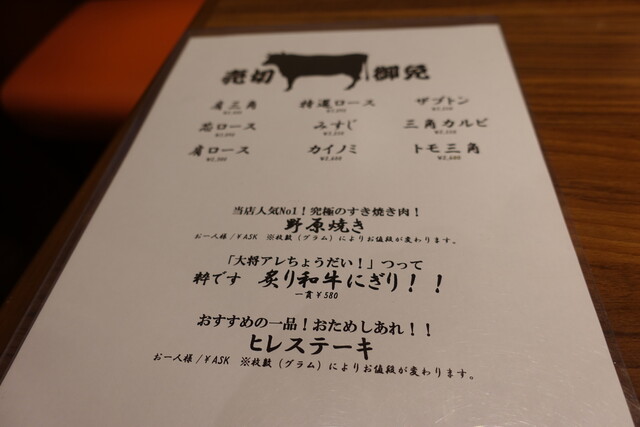 売切 御免
肩三角 特選ロース ザブトン
芯ロース みすじ 三角カルビ
肩ロース カイノミ トモ三角
¥2,680 ¥2,680
当店人気No1！究極のすき焼き肉！
野原焼き
お一人様/¥ASK ※枚数(グラム)によりお値段が変わります。
「大将アレちょうだい！」つって
粋です 炙り和牛にぎり！！
一貫¥580
おすすめの一品！おためしあれ！！
ヒレステーキ
お一人様/¥ASK ※枚数(グラム)によりお値段が変わります。